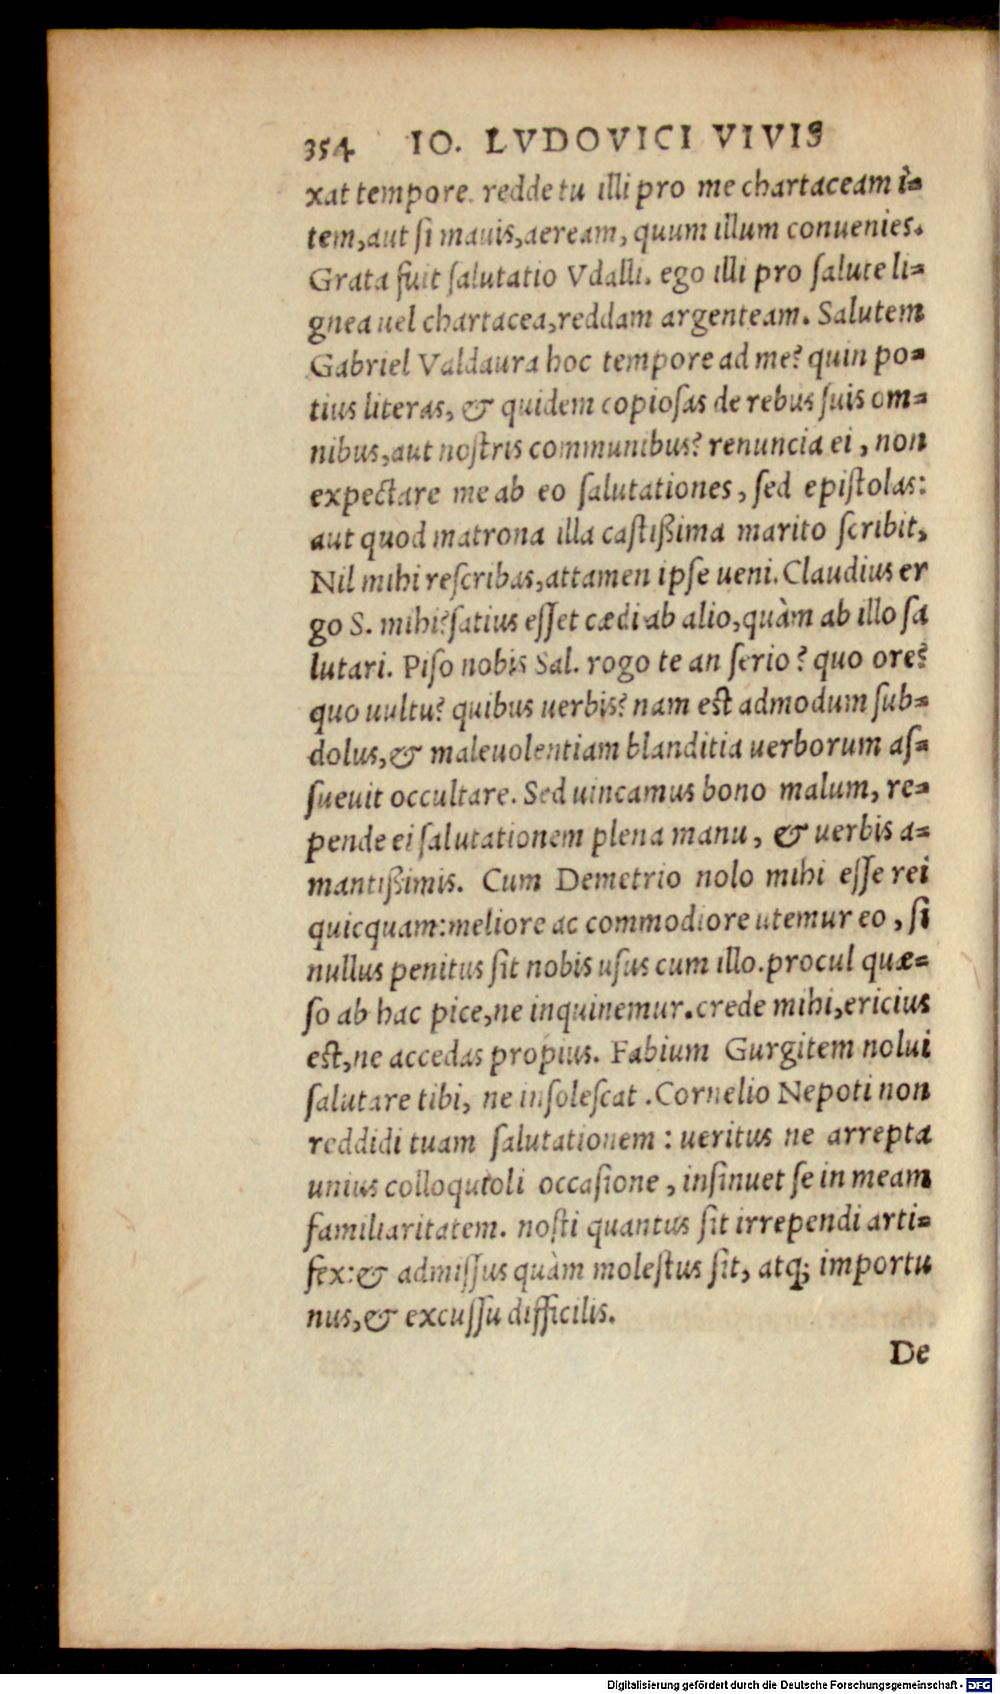 354 IO. LVDOVICI VIVIS
xat tempore. redde tu illi pro me chartaceam i-
tem, aut si mauis, aeream, quum illum conuenies.
Grata fuit salutatio Vdalli. ego illi pro salute li-
gnea uel chartacea, reddam argenteam. Salutem
Gabriel Valdaura hoc tempore ad me? quin po-
tius literas, & quidem copiosas de rebus suis om-
nibus, aut nostris communibus? renuncia ei, non
expectare me ab eo salutationes, sed epistolas:
aut quod matrona illa castißima marito scribit,
Nil mihi rescribas, attamen ipse ueni. Claudius er
go S. mihi? satius esset cædi ab alio, quàm ab illo sa
lutari. Piso nobis Sal. rogo te an serio? quo ore?
quo uultu? quibus uerbis? nam est admodum sub-
dolus, & maleuolentiam blanditia uerborum as-
sueuit occultare. Sed uincamus bono malum, re-
pende ei salutationem plena manu, & uerbis a-
mantißimis. Cum Demetrio nolo mihi esse rei
quicquam: meliore ac commodiore utemur eo, si
nullus penitus sit nobis usus cum illo. procul quæ-
so ab hac pice, ne inquinemur. crede mihi, ericius
est, ne accedas propius. Fabium Gurgitem nolui
salutare tibi, ne insolescat. Cornelio Nepoti non
reddidi tuam salutationem: ueritus ne arrepta
unius colloqutoli occasione, insinuet se in meam
familiaritatem. nosti quantus sit irrependi arti-
fex: & admissus quàm molestus sit, atq; importu
nus, & excussu difficilis.
De
Digitalisierung gefördert durch die Deutsche Forschungsgemeinschaft - DFG